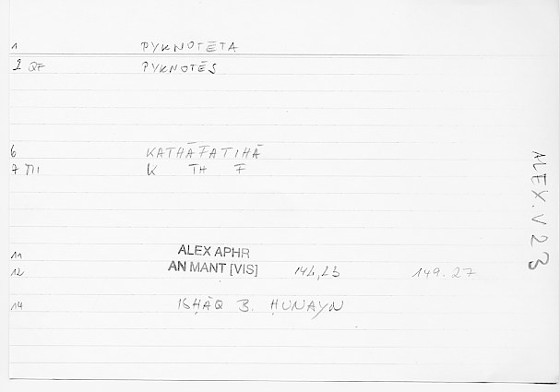 1 PYKNOTĒTA
2 QF PYKNOTĒS
6 KATHĀFATIHĀ
7 TII K TH F
11 ALEX APHR
12 AN MANT [VIS] 149.27
14 ISḤĀQ B. ḤUNAYN
ALEX.V 23